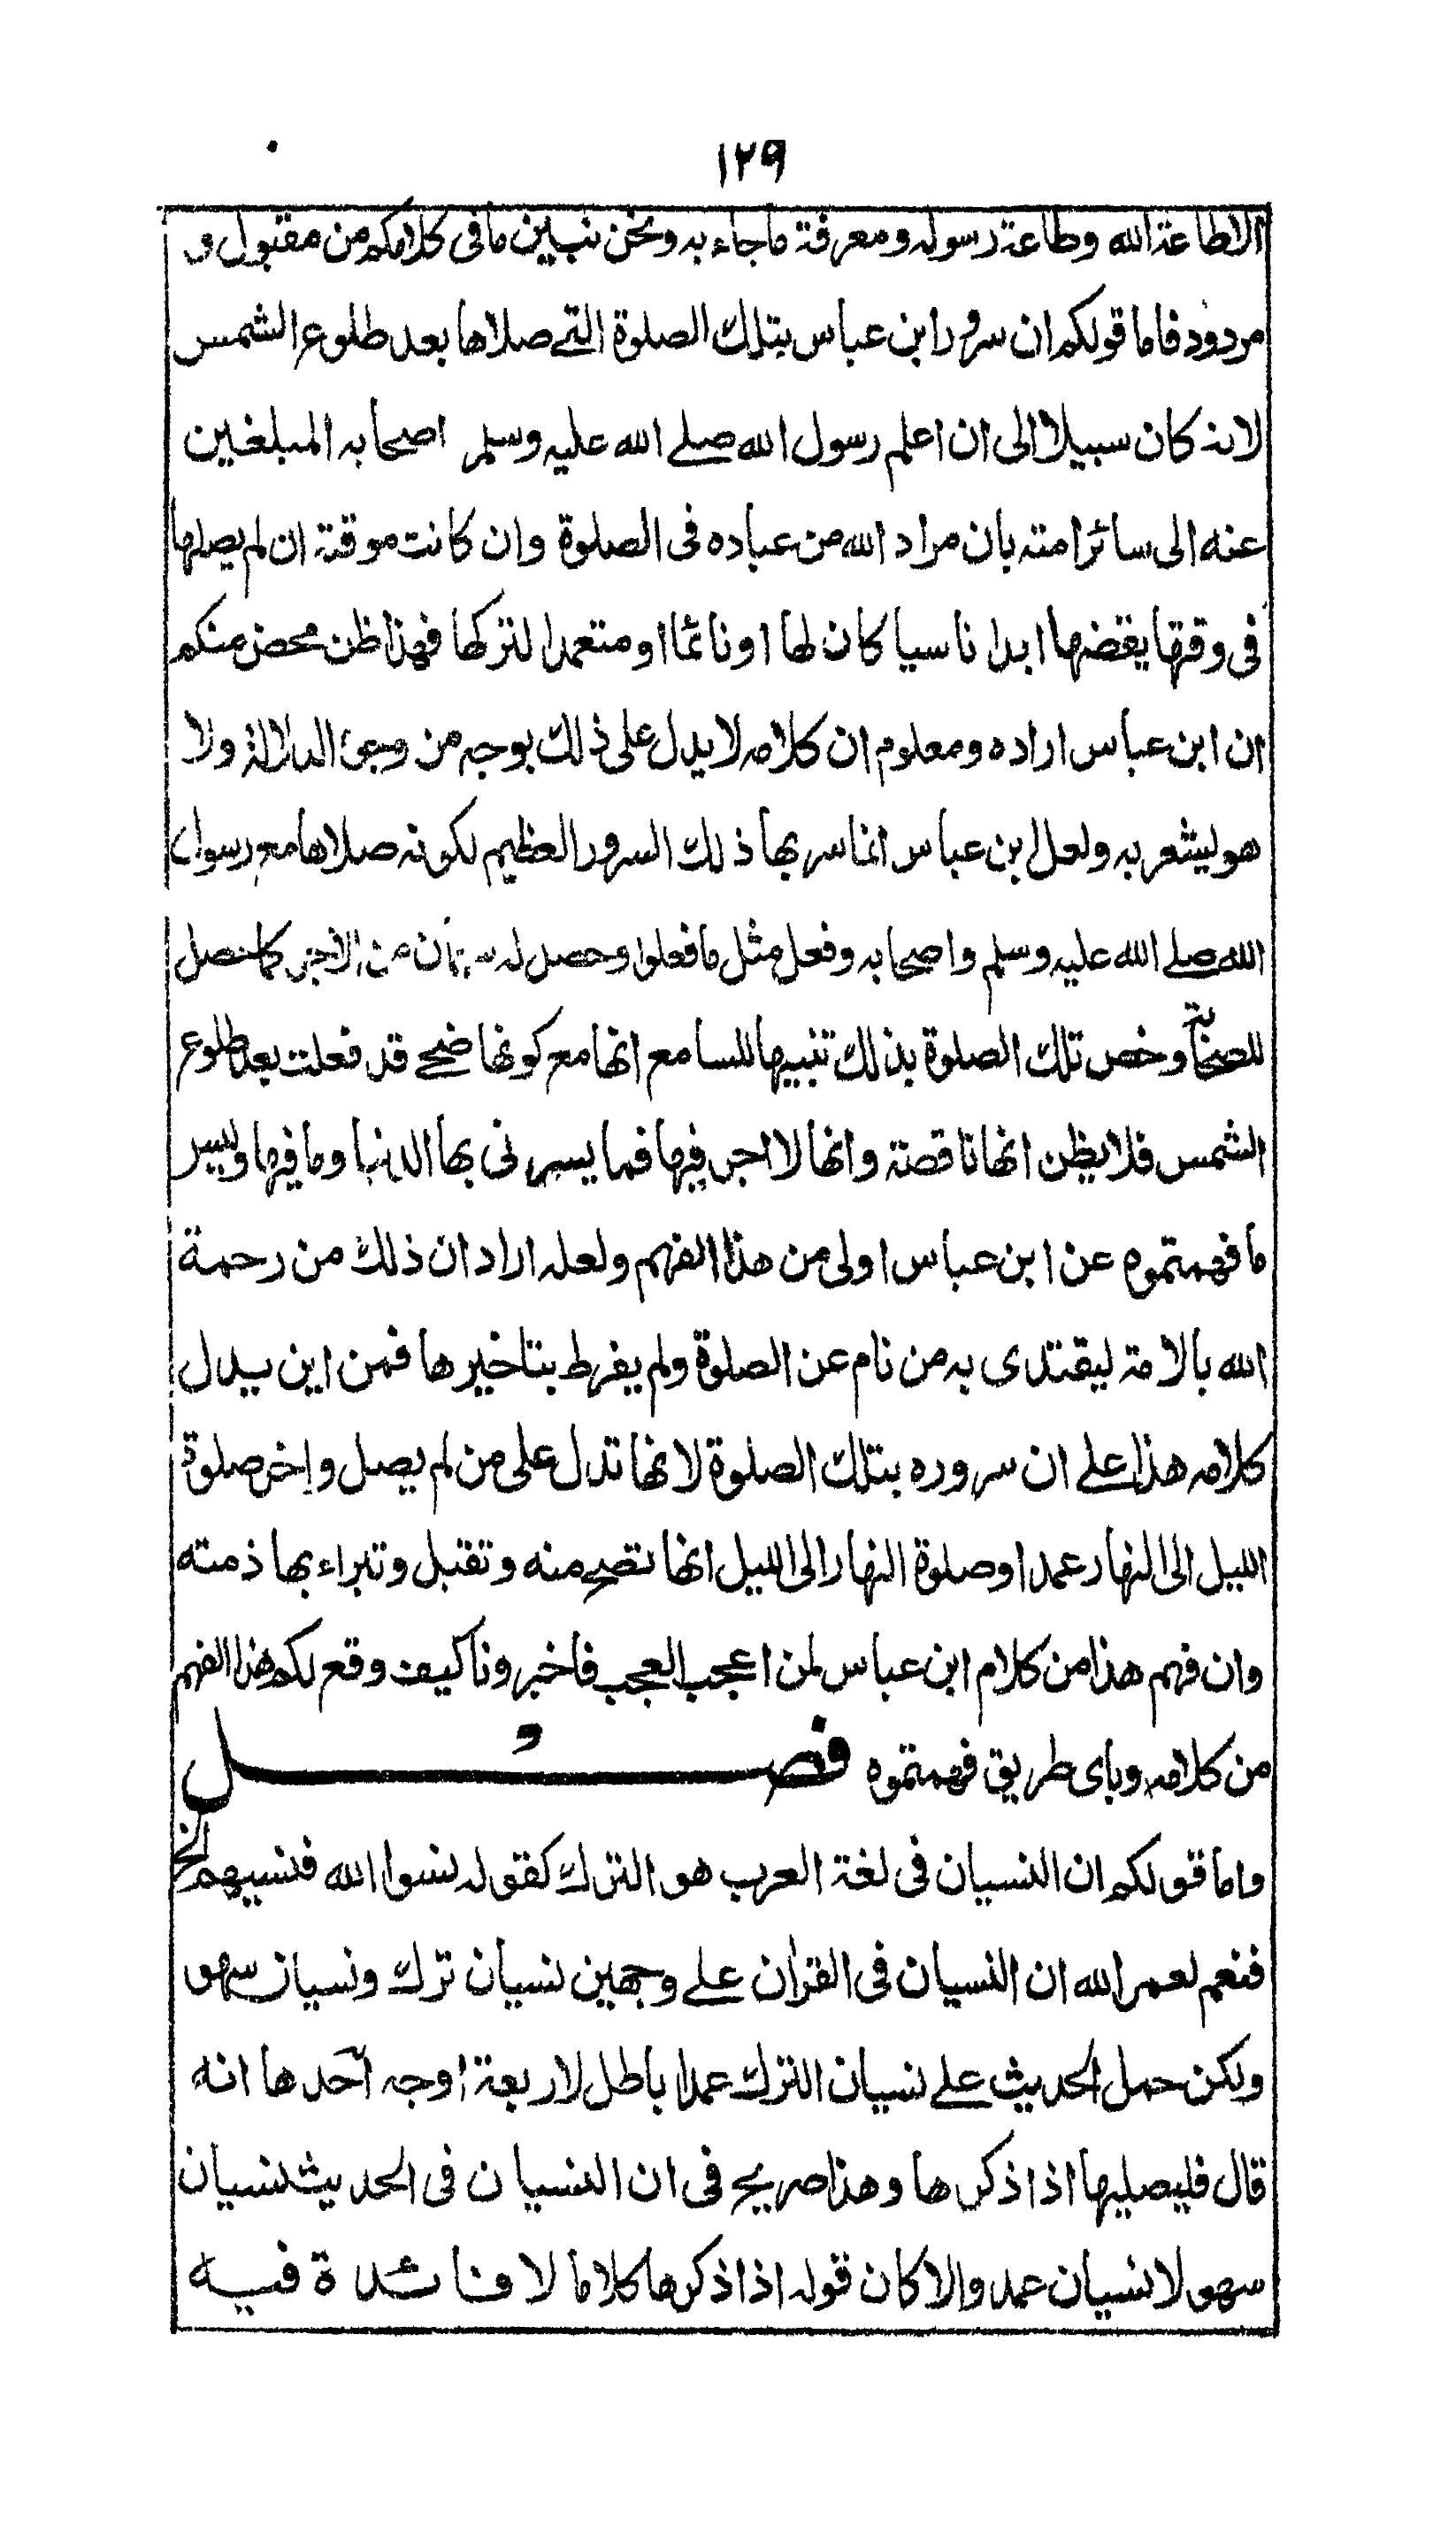 ١٢٩
الا طاعة الله وطاعة رسوله ومعرفة ما جاء به ونحن نبين ما فى كلامكم من مقبول و
مردود فاما قولكم ان سرور ابن عباس بتلك الصلوة التے صلاها بعد طلوع الشمس
لانه كان سبيلا الى ان اعلم رسول الله صلے الله عليه وسلم اصحابه المبلغين
عنه الى سائر امته بان مراد الله من عباده فى الصلوة وان كانت موقتة ان لم يصلها
فى وقتها يقضها ابدا ناسيا كان لها او نائما او متعمدا لتركها فهذا ظن محض منكم
ان ابن عباس اراده ومعلوم ان كلامه لا يدل على ذلك بوجه من وجوه الدلالة ولا
هو ليشعر به ولعل ابن عباس انما سر بها ذلك السرور العظيم لكونه صلاها مع رسول
الله صلے الله عليه وسلم واصحابه وفعل مثل ما فعلوا وحصل له من الاجر كما حصل
للصحابة وخص تلك الصلوة بذلك تنبيها للسامع انها مع كونها ضحے قد فعلت بعد طلوع
الشمس فلا يظن انها ناقصة وانها لا اجر فيها فما يسرنى بها الدنيا وما فيها وليس
ما فهمتموه عن ابن عباس اولى من هذا الفهم ولعله اراد ان ذلك من رحمة
الله بالامة ليقتدى به من نام عن الصلوة ولم يفرط بتاخيرها فمن اين يدل
كلامه هذا علے ان سروره بتلك الصلوة لانها تدل على من لم يصل واخر صلوة
الليل الى النهار عمدا او صلوة النهار الى الليل انها تصح منه وتقبل وتبراء بها ذمته
وان فهم هذا من كلام ابن عباس لمن اعجب العجب فاخبرونا كيف وقع لكم هذا الفهم
من كلامه وباى طريق فهمتموه فصل
واما قولكم ان النسيان فى لغة العرب هو الترك كقوله نسوا الله فنسيهم الخ
فنعم لعمر الله ان النسيان فى القران علے وجهين نسيان ترك ونسيان سهو
ولكن حمل الحديث علے نسيان الترك عمدا باطل لاربعة اوجه احدها انه
قال فليصليها اذا ذكرها وهذا صريح فى ان النسيان فى الحديث نسيان
سهو لا نسيان عمد والا كان قوله اذا ذكرها كلاما لا فائدة فيه